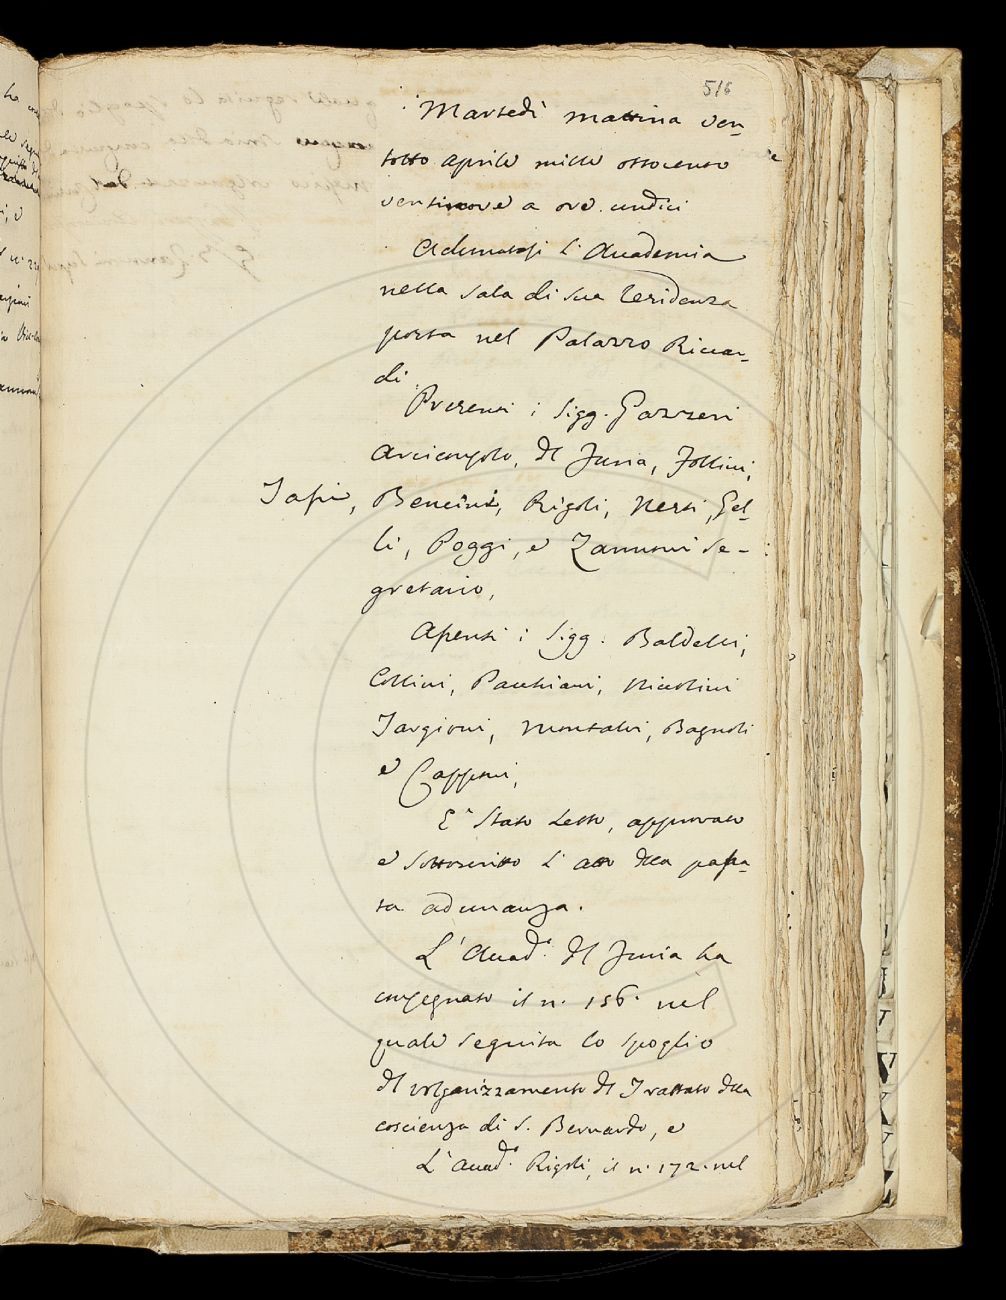 516
Martedì mattina ven-
totto Aprile mille ottocento
ventinove a ore undici
Adunatasi l'Accademia
nella Sala di sua residenza
posta nel Palazzo Riccar-
di
Presenti i Sigg. Gazzeri
Arciconsolo, del Furia, Follini,
Tassi, Bencini, Rigoli, Nesti, Gel-
li, Poggi, e Zannoni Se-
gretario,
Assenti i Sigg. Baldelli,
Collini, Pacchiani, Niccolini
Targioni, Montalvi, Bagnoli
e Capponi,
E' stato letto, approvato
e sottoscritto l'atto della passa-
ta adunanza.
L'Accad.o del Furia ha
consegnato il n. 156. nel
quale seguita lo spoglio
del volgarizzamento del Trattato della
coscienza di S. Bernardo, e
L'Accad.o Rigoli, il n. 172. nel